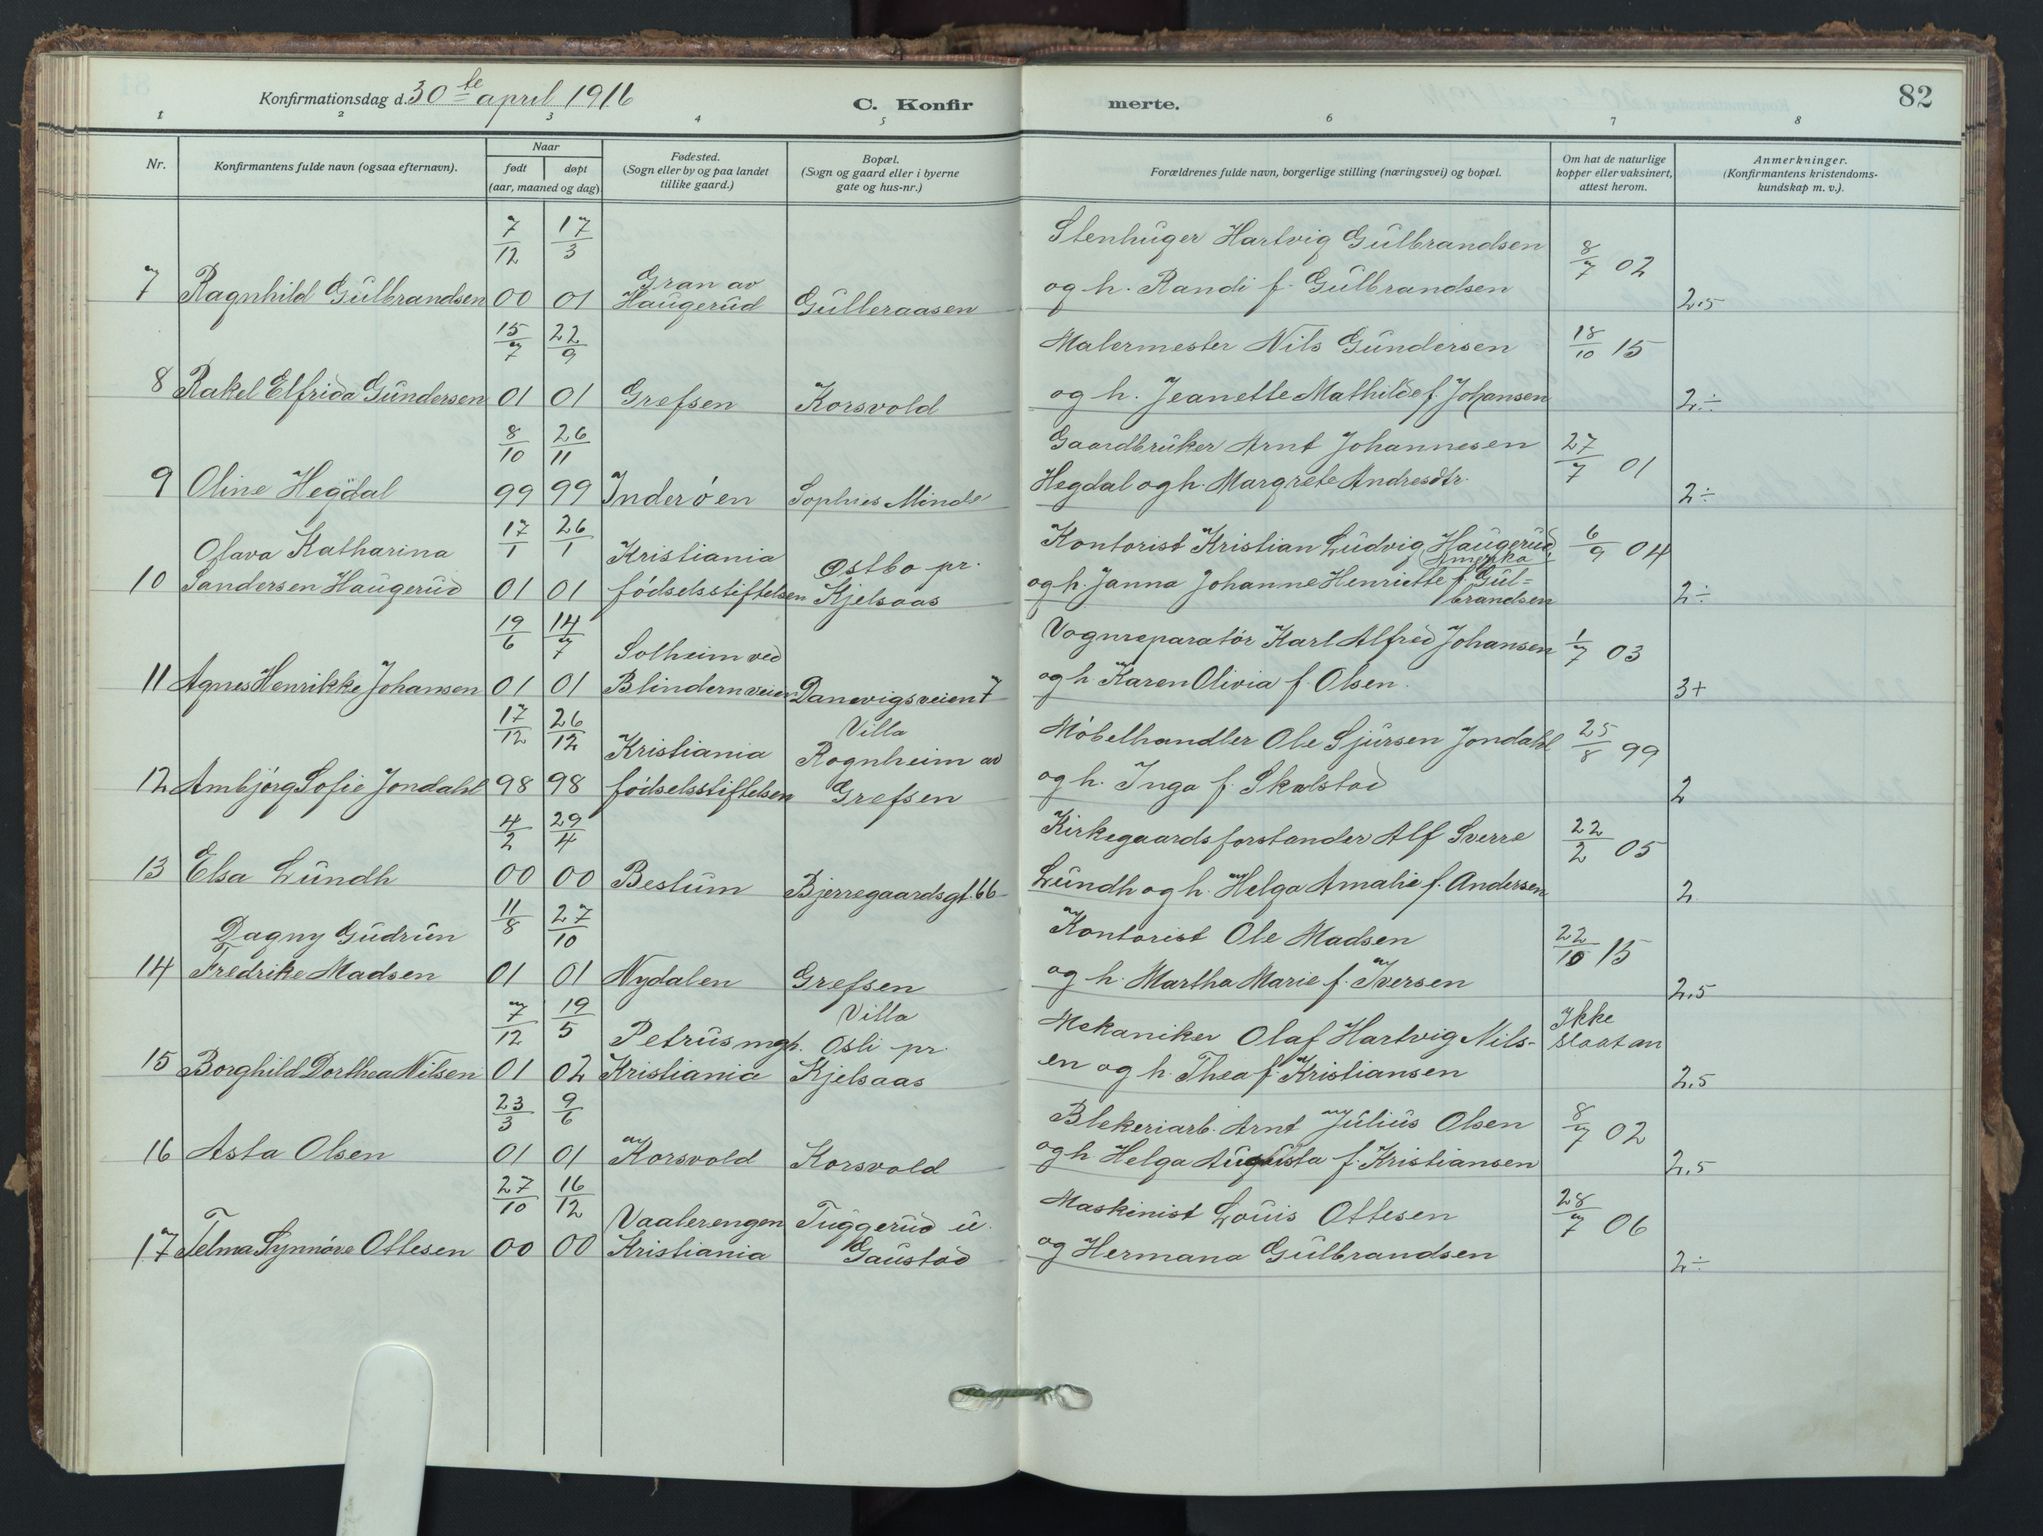 Konfirmationsdag d. 30te april 1916
C. Konfir
merte.
82
1 2 3 4 5 6 7 8
Nr.
Konfirmantens fulde navn (ogsaa efternavn).
Naar
født
døpt
(aar, maaned og dag)
Fødested.
(Sogn eller by og paa landet
tillike gaard.)
Bopæl.
(Sogn og gaard eller i byerne
gate og hus-nr.)
Forældrenes fulde navn, borgerlige stilling (næringsvei) og bopæl.
Om hat de naturlige
kopper eller vaksinert,
attest herom.
Anmerkninger.
(Konfirmantens kristendoms-
kundskap m. v.).
7/12 17/3 Stenhuger Hartvig Gulbrandsen 8/7 02
Gran av
7 Ragnhild Gulbrandsen 00 01 Haugerud Gulleraasen og h. Randi f. Gulbrandsen 2.5
15/7 22/9 Malermester Nils Gundersen 18/10 15
8 Rakel Elfrida Gundersen 01 01 Grefsen Korsvold og h. Jeanette Mathilde f. Johansen 2÷
8/10 26/11 Gaardbruker Arnt Johannesen 27/7 01
9 Oline Hegdal 99 99 Inderøen Sophies Minde Hegdal og h. Margrete Andresdtr. 2÷
17/1 26/1 Kontorist Kristian Ludvig Haugerud 6/9 04
Olava Katharina Kristiania Østbo pr. Amerika
10 Sandersen Haugerud 01 01 fødselsstiftelsen Kjelsaas og h. Janna Johanne Henriette f. Gul-
brandsen 2÷
19/6 14/7 Solheim ved Vognreparatør Karl Alfred Johansen 1/7 03
11 Agnes Henrikke Johansen 01 01 Blindernveien Danevigsveien 7 og h. Karen Olivia f. Olsen. 3+
17/12 26/12 Kristiania Villa Møbelhandler Ole Sjursen Jondahl 25/8 99
Rognheim av
12 Ambjørg Sofie Jondahl 98 98 fødselsstiftelsen Grefsen og h. Inga f. Skalstad 2
4/2 29/4 Kirkegaardsforstander Alf Sverre 22/2 05
13 Elsa Lundh 00 00 Bestum Bjerregaardsgt. 66 Lundh og h. Helga Amalie f. Andersen 2
11/8 27/10 Kontorist Ole Madsen 22/10 15
Dagny Gudrun
14 Fredrike Madsen 01 01 Nydalen Grefsen og h. Martha Marie f. Iversen 2,5
7/12 19/5 Villa Mekaniker Olaf Hartvig Nils- Ikke
Petrus mgh. Osli pr. slaat an
15 Borghild Dorthea Nilsen 01 02 Kristiania Kjelsaas en og h. Thea f. Kristiansen 2,5
23/3 9/6 Blekeriarb. Arnt Julius Olsen 8/7 02
16 Asta Olsen 01 01 Korsvold Korsvold og h. Helga Augusta f. Kristiansen 2,5
27/10 16/12 Vaalerengen Tuggerud u. Maskinist Louis Ottesen 28/7 06
17 Telma Synnøve Ottesen 00 00 Kristiania Gaustad og Hermana Gulbrandsen 2÷